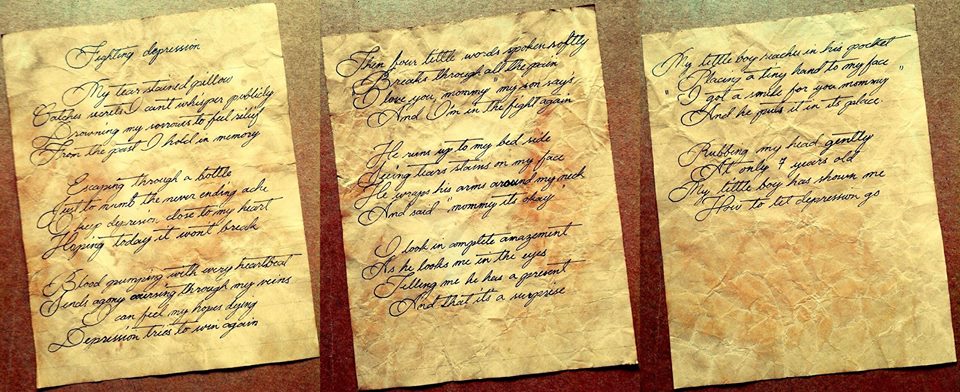 Fighting depression
My tear stained pillow
Catches secrets I cant whisper publicly
Drowning my sorrows to feel relief
From the past I hold in memory
Escaping through a bottle
Just to numb the never ending ache
I keep depression close to my heart
Hoping today it wont break
Blood pumping with every heartbeat
Sends agony coursing through my veins
I can feel my hopes dying
Depression tries to win again
Then four little words spoken softly
Breaks through all the pain
I love you, mommy my son says
And I'm in the fight again
He runs up to my bed side
Seeing tears stains on my face
He wraps his arms around my neck
And said "mommy its okay"
I look in complete amazement
As he looks me in the eyes
Telling me he has a present
And that its a surprise
My little boy reaches in his pocket
Placing a tiny hand to my face
"I got a smile for you mommy"
And he puts it in its place.
Rubbing my head gently
At only 7 years old
My little boy has shown me
How to let depression go